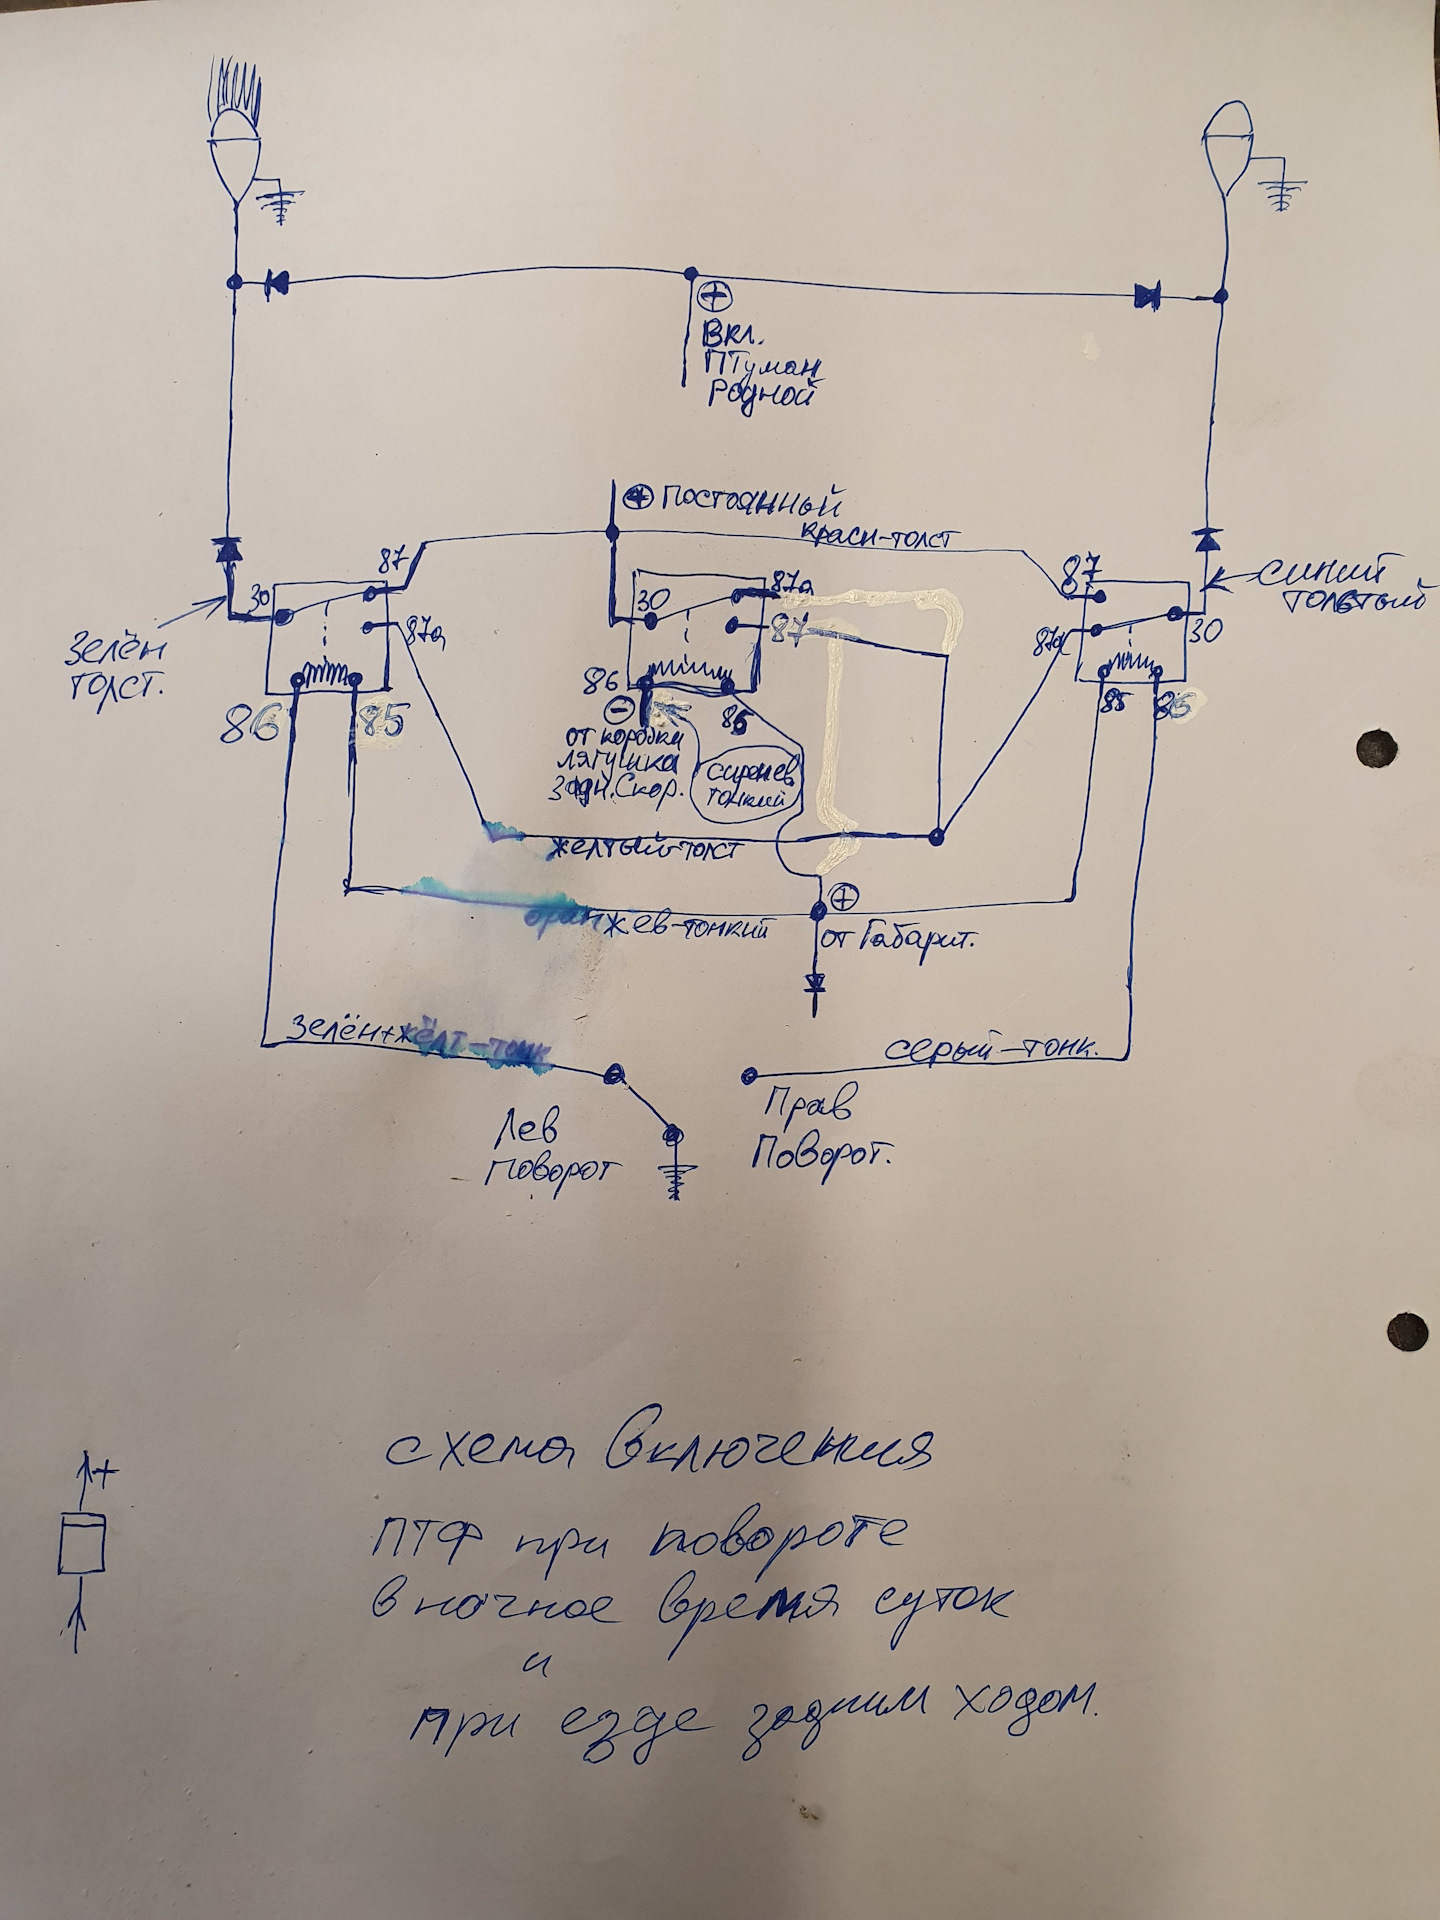 +
Вкл.
ПТуман
Родной
+ Постоянный
красн-толст
87
30
87а
Зелён
толст.
86
85
87а
30
87
86
85
−
от коробки
лягушка
Задн. Скор.
сиренев.
тонкий
87
87а
30
85
86
синий
толстый
желтый-толст
оранжев-тонкий
+
от Габарит.
Зелён+жёлт-тонк
серый-тонк.
Лев
поворот
Прав
Поворот.
+
схема включения
ПТФ при повороте
в ночное время суток
и
при езде задним ходом.